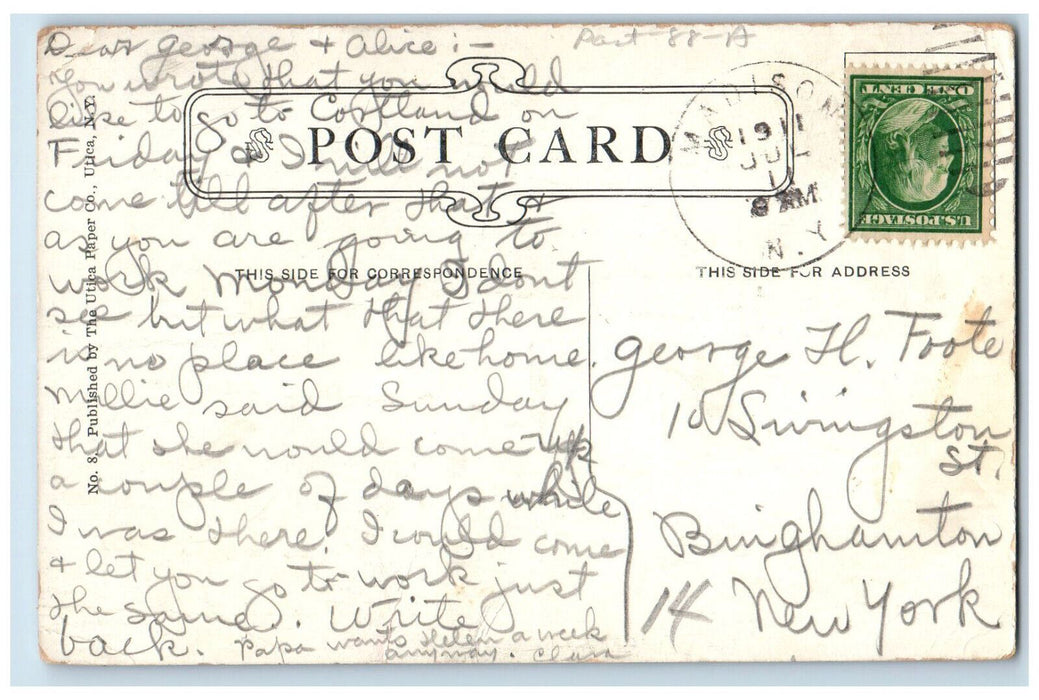 Dear George & Alice :-
You wrote that you would
like to go to Cortland on
Friday & I will not
come till after that &
as you are going to
work Monday I dont
see but what that there
is no place like home.
Millie said Sunday
that she would come up
a couple of days while
I was there. I could come
& let you go to work just
the same. Write
back. Papa wants Helen a week
anyway. Clara
Part-88-A
POST CARD
THIS SIDE FOR CORRESPONDENCE
THIS SIDE FOR ADDRESS
No. 8. Published by The Utica Paper Co., Utica, N.Y.
MADISON
1911
JUL
9 AM
N.Y.
U.S. POSTAGE
ONE CENT
George H. Foote
10 Livingston
St.
Binghamton
14 New York